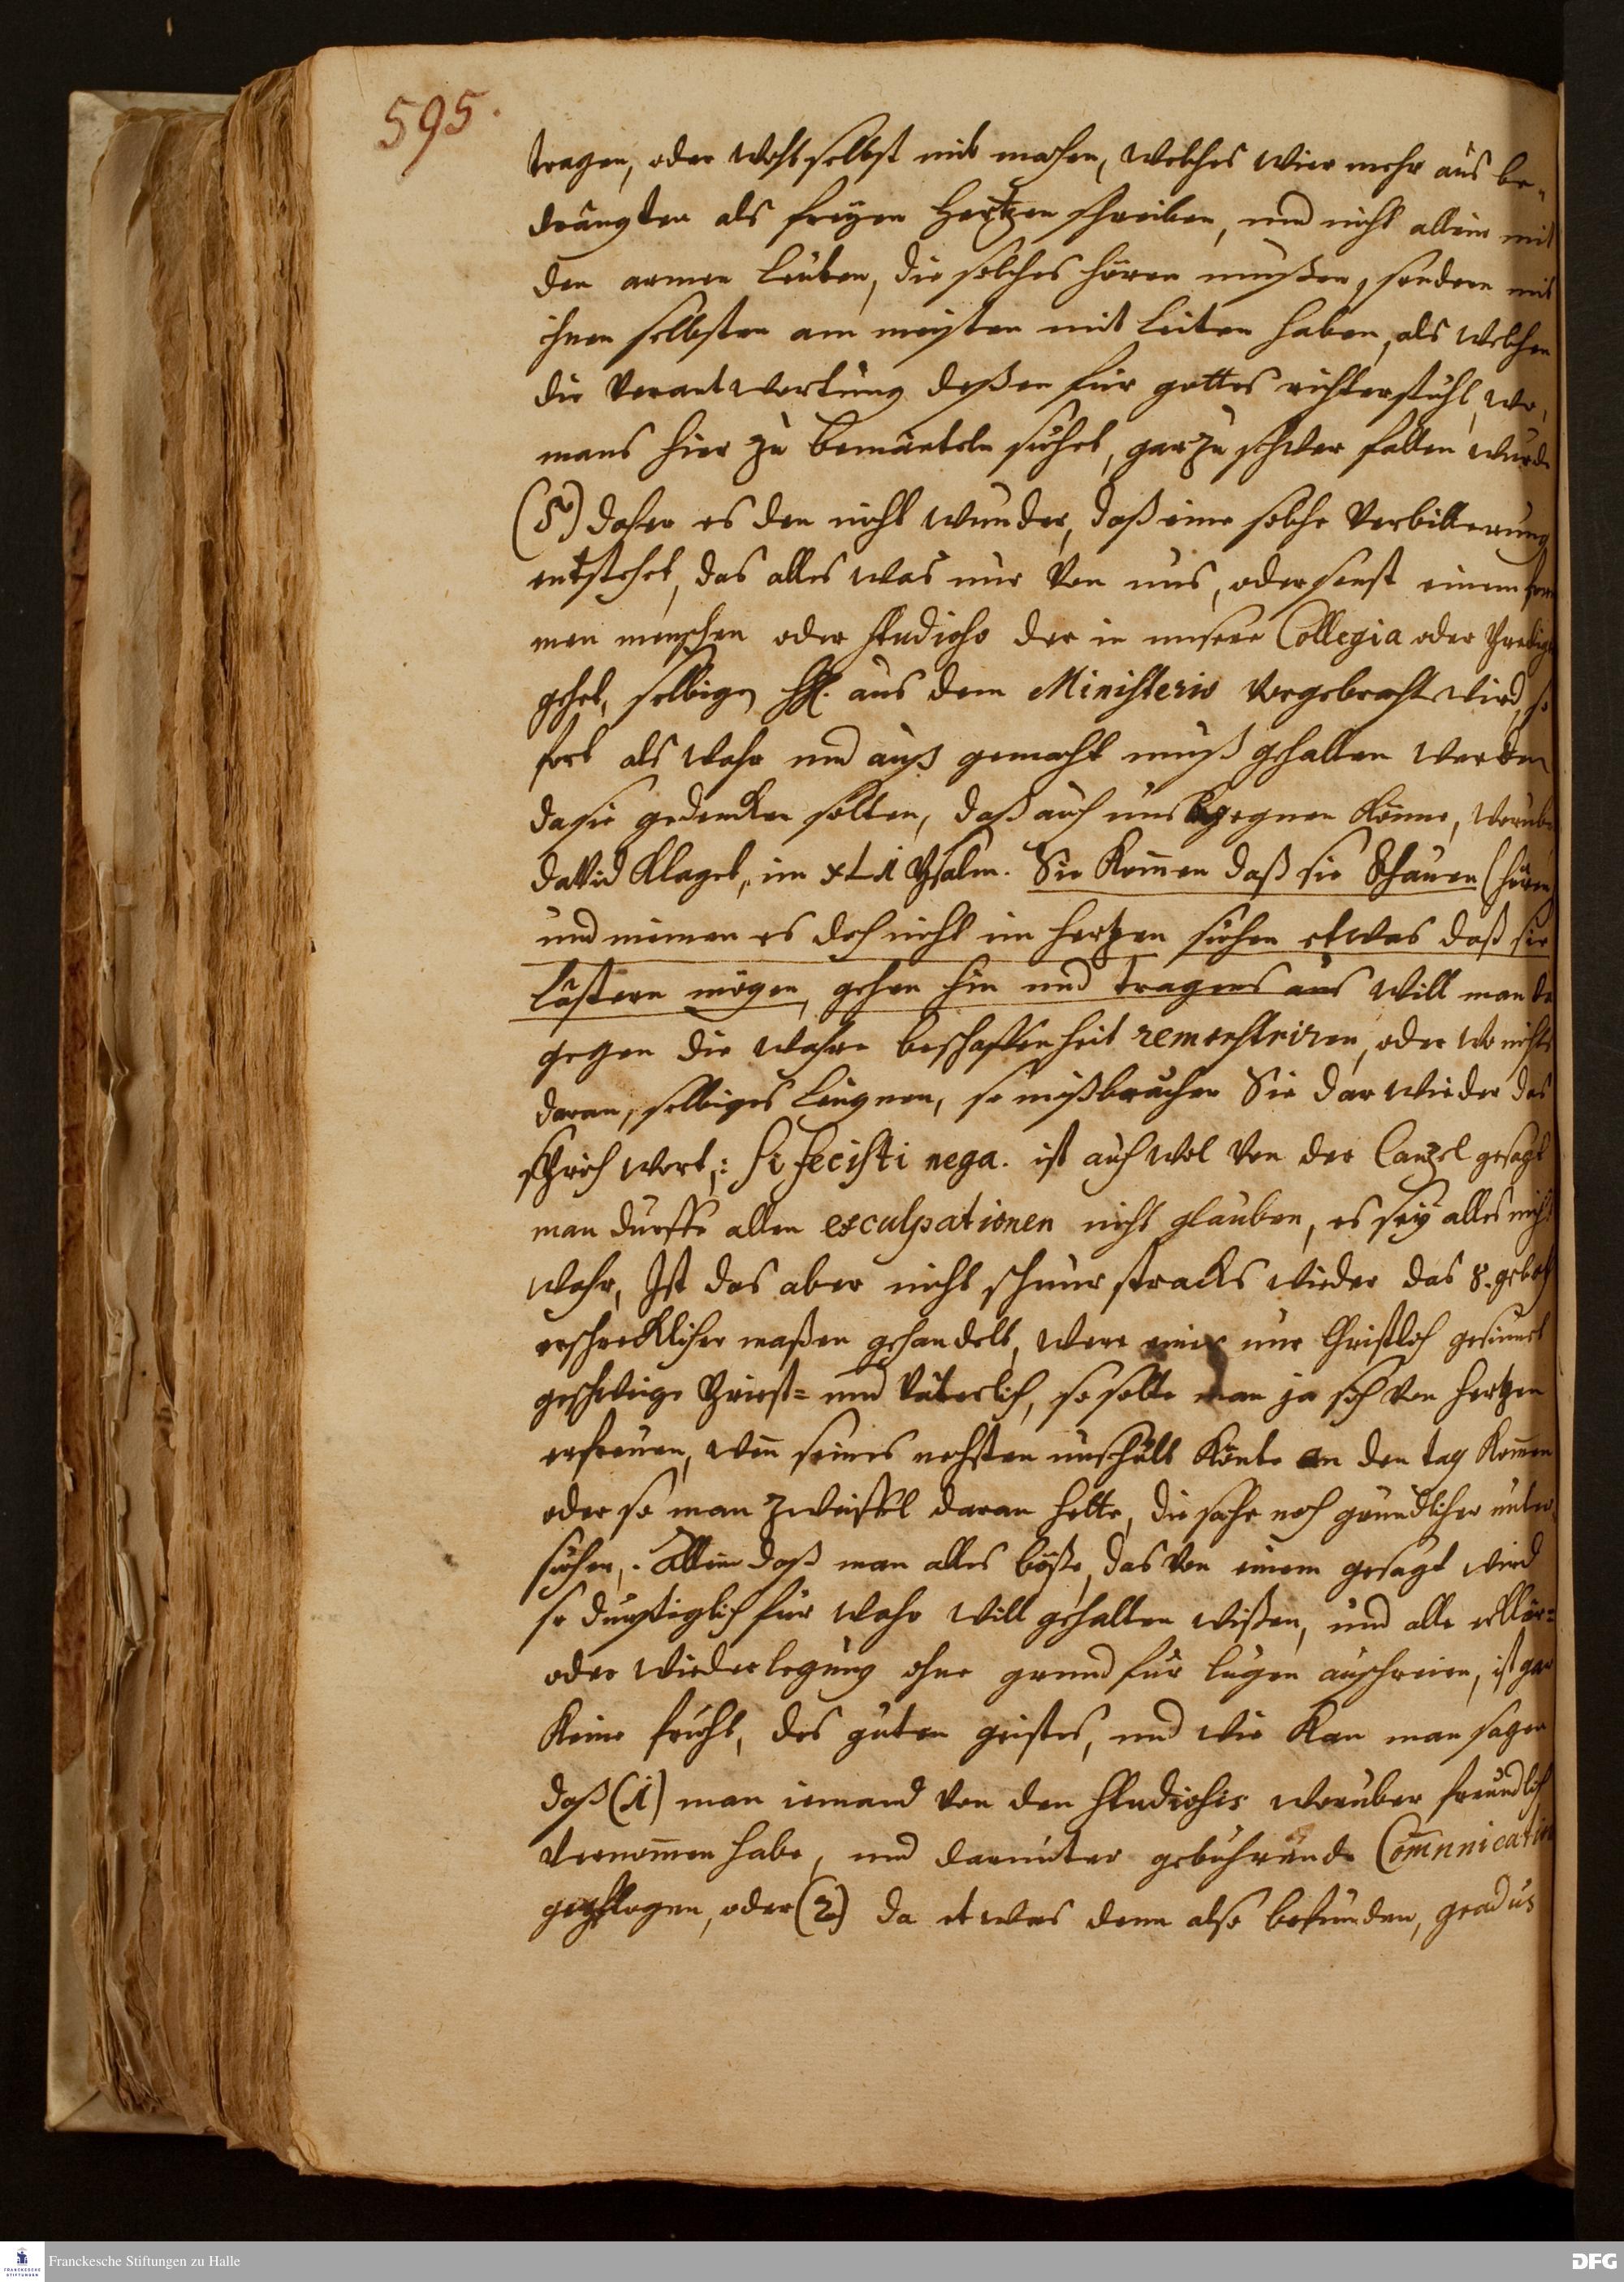 595.
tragen, oder wohl selbst mit machen, welches wier mehr aus be-
drängten als freyen Hertzen schreiben, und nicht allein mit
den armen Leuten, die solches hören mussen, sondern mit
ihnen selbsten am meisten mit leiten haben, als welchen
die Verantwortung deßen für gottes richterstuhl, wo
mans hier zu bemänteln suchet, gar zu schwer fallen wurde
(8) daher es den nicht wunder, daß eine solche Verbitterung
entstehet, das alles was nur von uns, oder sonst einem from
men menschen oder Studioso der in unsere Collegia oder Predigt
gehet, selbigen HH. aus dem Ministerio vorgebracht wird, so
fort als wahr und auß gemacht muß gehalten werden
da sie gedencken solten, daß auch uns begegnen könne, worube
David klaget, im XLI Psalm. Sie kom̄en daß sie schauen (hören)
und meinen es doch nicht im hertzen suchen etwas daß sie
lästern mögen, gehen hin und tragens aus will man da
gegen die wahre beschaffenheit remonstriren, oder wo nichts
daran, selbiges leugnen, so mißbrauchen Sie dar wieder das
sprich wort,: si fecisti nega. ist auch wol von der Canzel gesagt
man durffe allen exculpationen nicht glauben, es sey alles nicht
wahr, Ist das aber nicht schnur stracks wieder das 8. geboth
erschrecklicher maßen gehandelt, were einer nur Christlich gesinnet
geschweige Priest= und Väterlich, so solte man ja sich von hertzen
erfreuen, wen̄ seines nehsten unschult könte an den tag kom̄en
oder so man zweiffel daran hette, die sache noch gründlicher unter
suchen,. Allein daß man alles böße, das von einem gesagt wird
so durstiglich für wahr will gehalten wißen, und alle erklär=
oder wiederlegung ohne grund für lügen auschreien, ist gar
keine frucht, des guten geistes, und wie kan man sagen
daß (1) man iemand von den Studiosis worüber freundlich
vernom̄en habe, und darunter gebührende Com̄unication
gepflogen, oder (2) da etwas denn also befunden, gradus
Franckesche Stiftungen zu Halle
FRANCKESCHE STIFTUNGEN
DFG